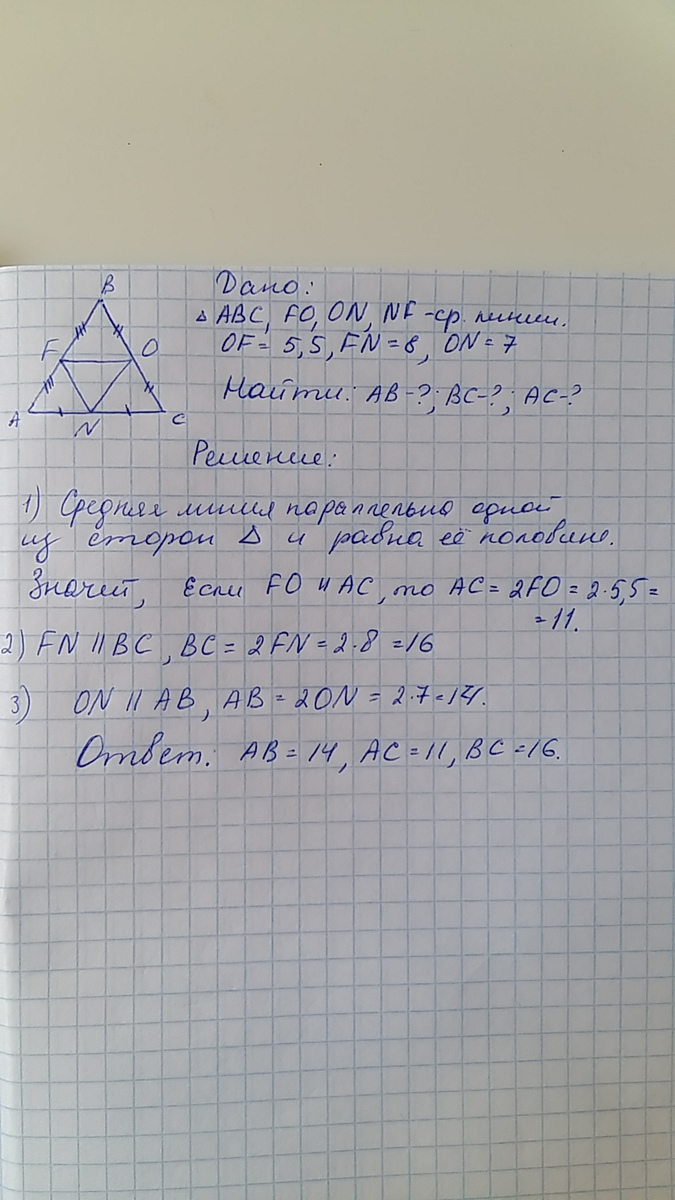 B
F
O
A
N
C
Дано:
△ ABC, FO, ON, NF -ср. линии.
OF = 5,5, FN = 8, ON = 7
Найти: AB-?; BC-?; AC-?
Решение:
1) Средняя линия параллельно одной
из сторон △ и равна её половине.
Значит, Если FO || AC, то AC = 2FO = 2·5,5 =
= 11.
2) FN || BC, BC = 2FN = 2·8 = 16
3) ON || AB, AB = 2ON = 2·7 = 14.
Ответ: AB = 14, AC = 11, BC = 16.